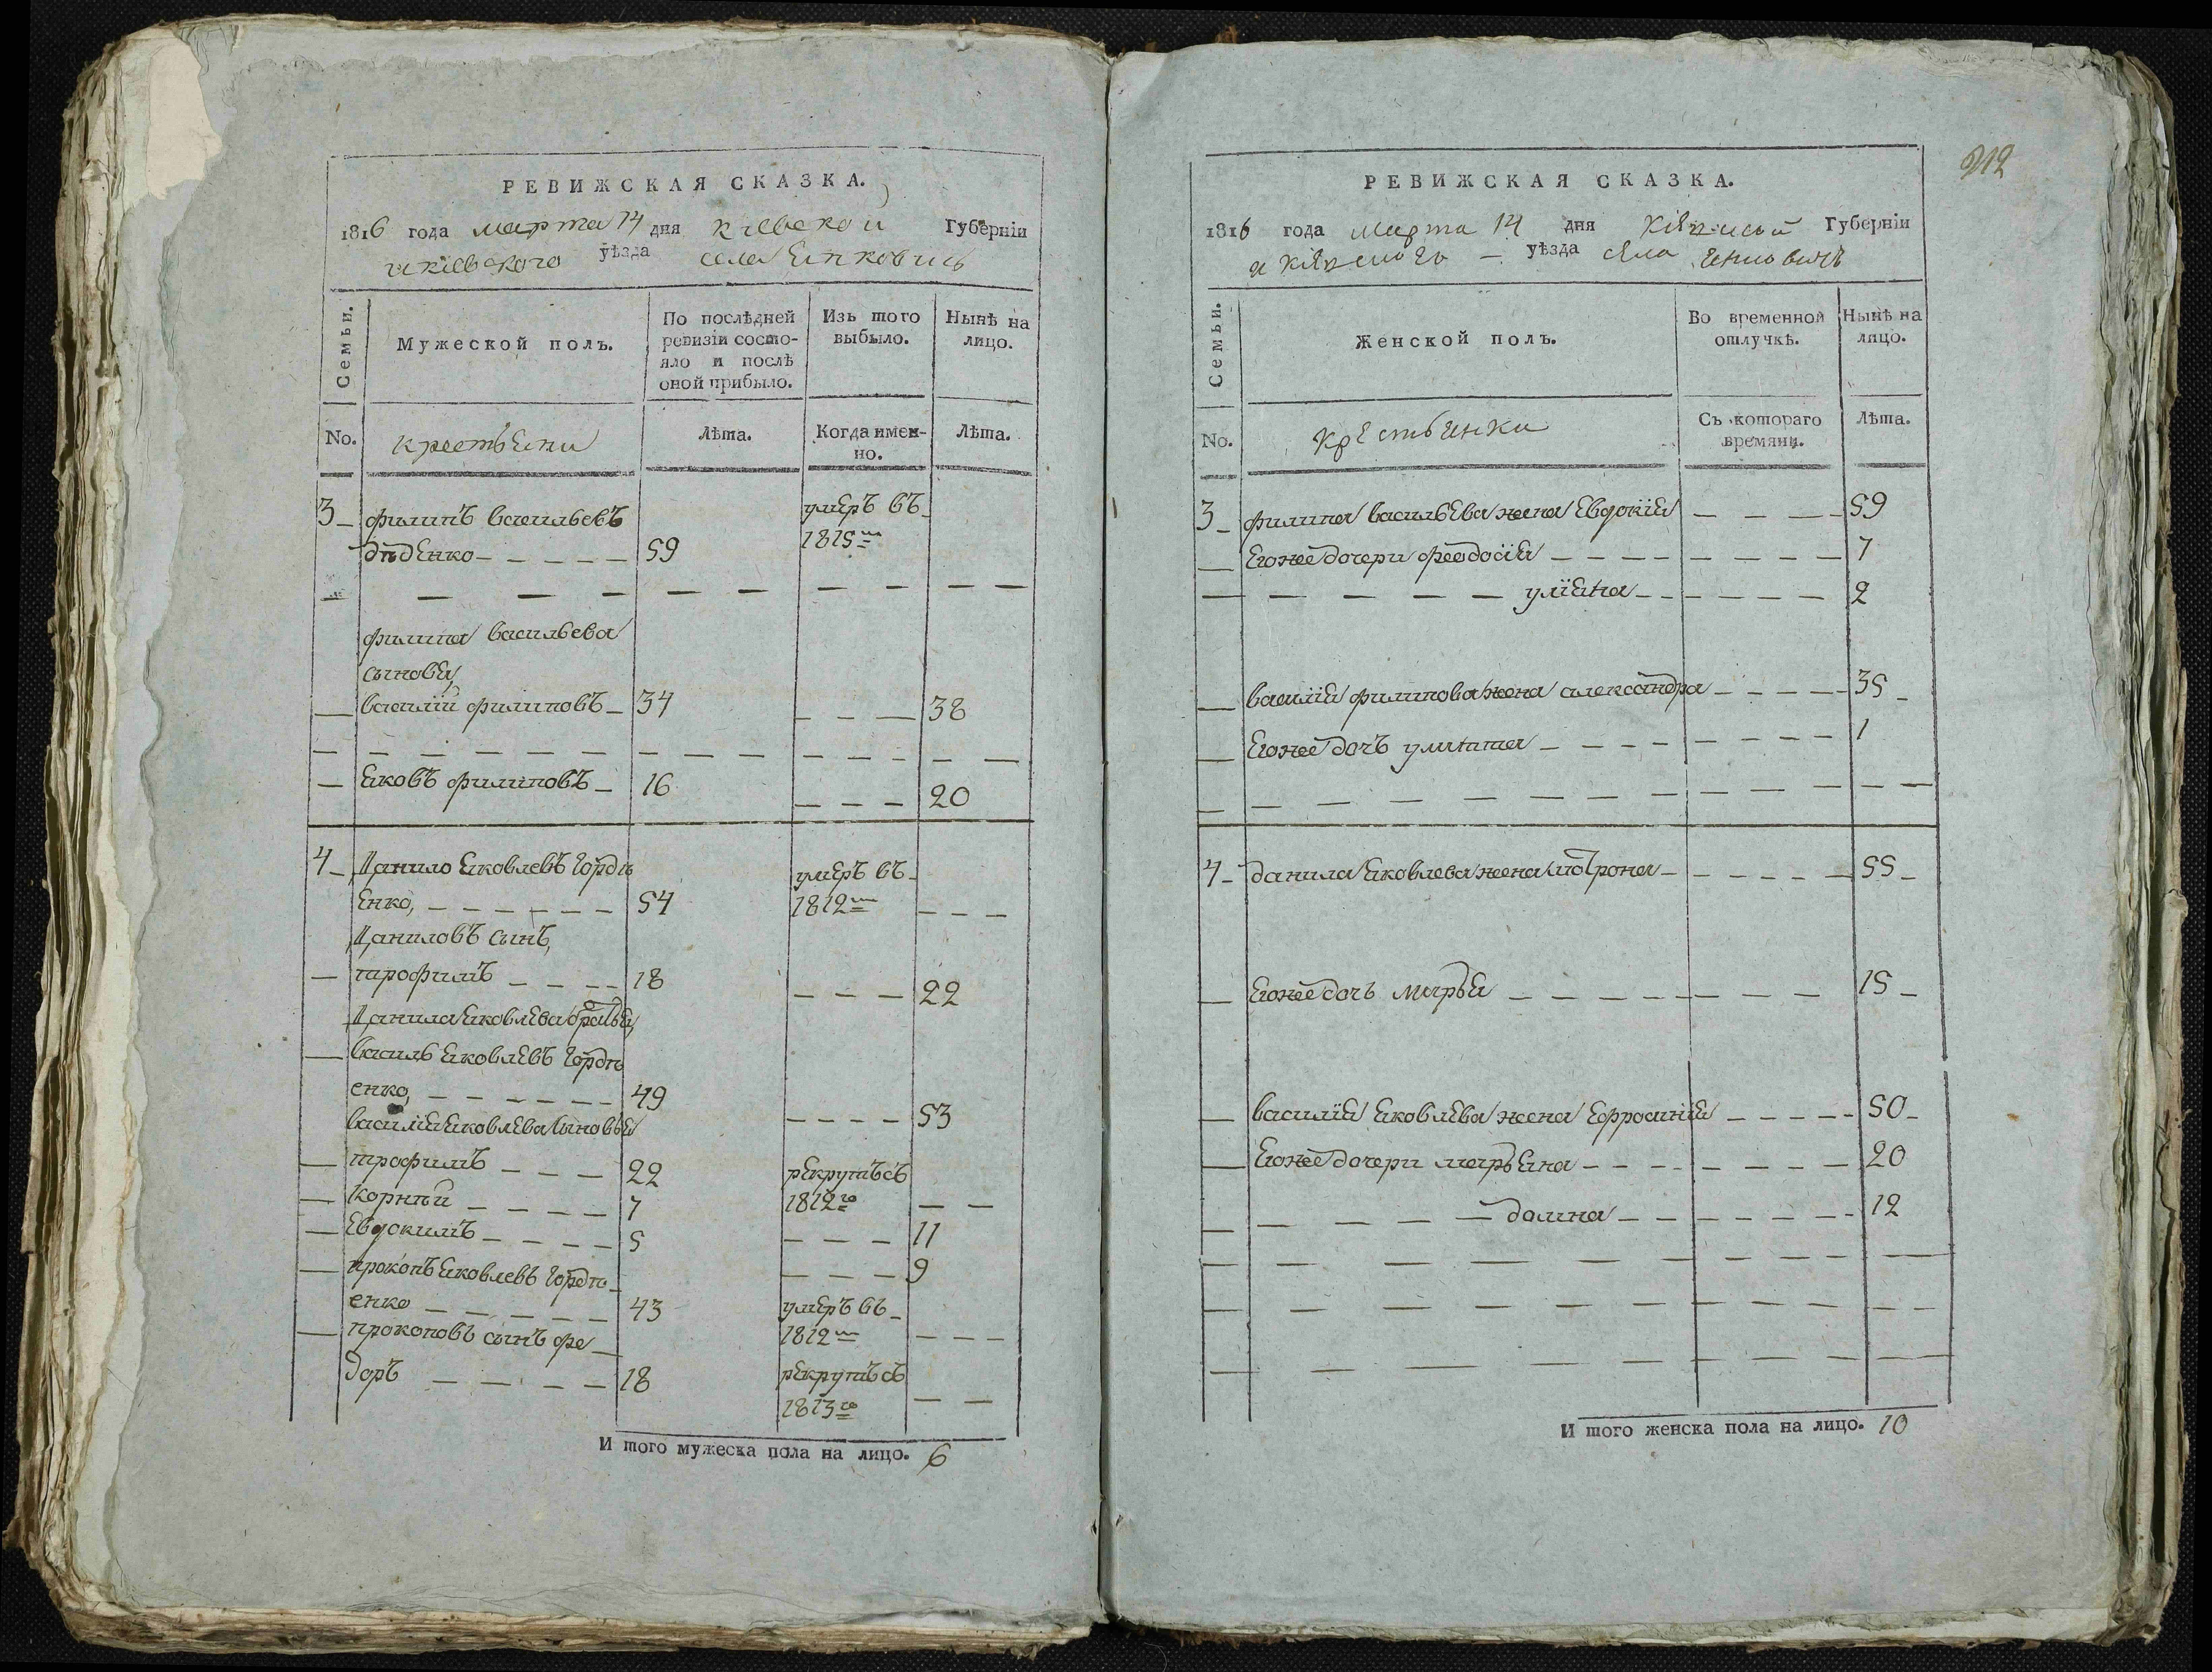 РЕВИЖСКАЯ СКАЗКА.
1816 года марта 14 дня киевской Губерніи
и киевского уѣзда села Янковичь
Семьи.
Мужеской полъ.
По послѣдней ревизіи состояло и послѣ оной прибыло.
Изъ того выбыло.
Нынѣ на лицо.
No.
крестьяни
Лѣта.
Когда именно.
Лѣта.
3 филипъ васильевъ умеръ въ
дѣденко 59 1815м
филипа васильева
сыновя,
василій филиповъ 34 38
яковъ филиповъ 16 20
4 Данило яковлевъ гордѣ умеръ въ
енко, 54 1812м
Даниловъ сынъ,
трофимъ 18 22
Данила яковлева братья,
василь яковлевъ гордѣ
енко, 49 53
василія яковлева сыновья
трофимъ 22 рекрутъ съ
1812го
корнѣй 7 11
Евдокимъ 5 9
прокопъ яковлевъ гордѣ
енко 43 умеръ въ
1812м
прокоповъ сынъ фе
доръ 18 рекрутъ съ
1813го
И того мужеска пола на лицо. 6
212
РЕВИЖСКАЯ СКАЗКА.
1816 года Марта 14 дня Кіевской Губерніи
и Кіевского уѣзда села Янковичь
Семьи.
Женской полъ.
Во временной отлучкѣ.
Нынѣ на лицо.
No.
Крестьянки
Съ котораго времяни.
Лѣта.
3 филипа васильева жена Евдокія 59
Егожее дочери феодосія 7
улiяна 2
василія филипова жена александра 35
Егожее дочь улита 1
4 данила яковлева жена матрона 55
Егожее дочь марья 15
василія яковлева жена Ефросинія 50
Егожее дочери марьяна 20
домна 12
И того женска пола на лицо. 10